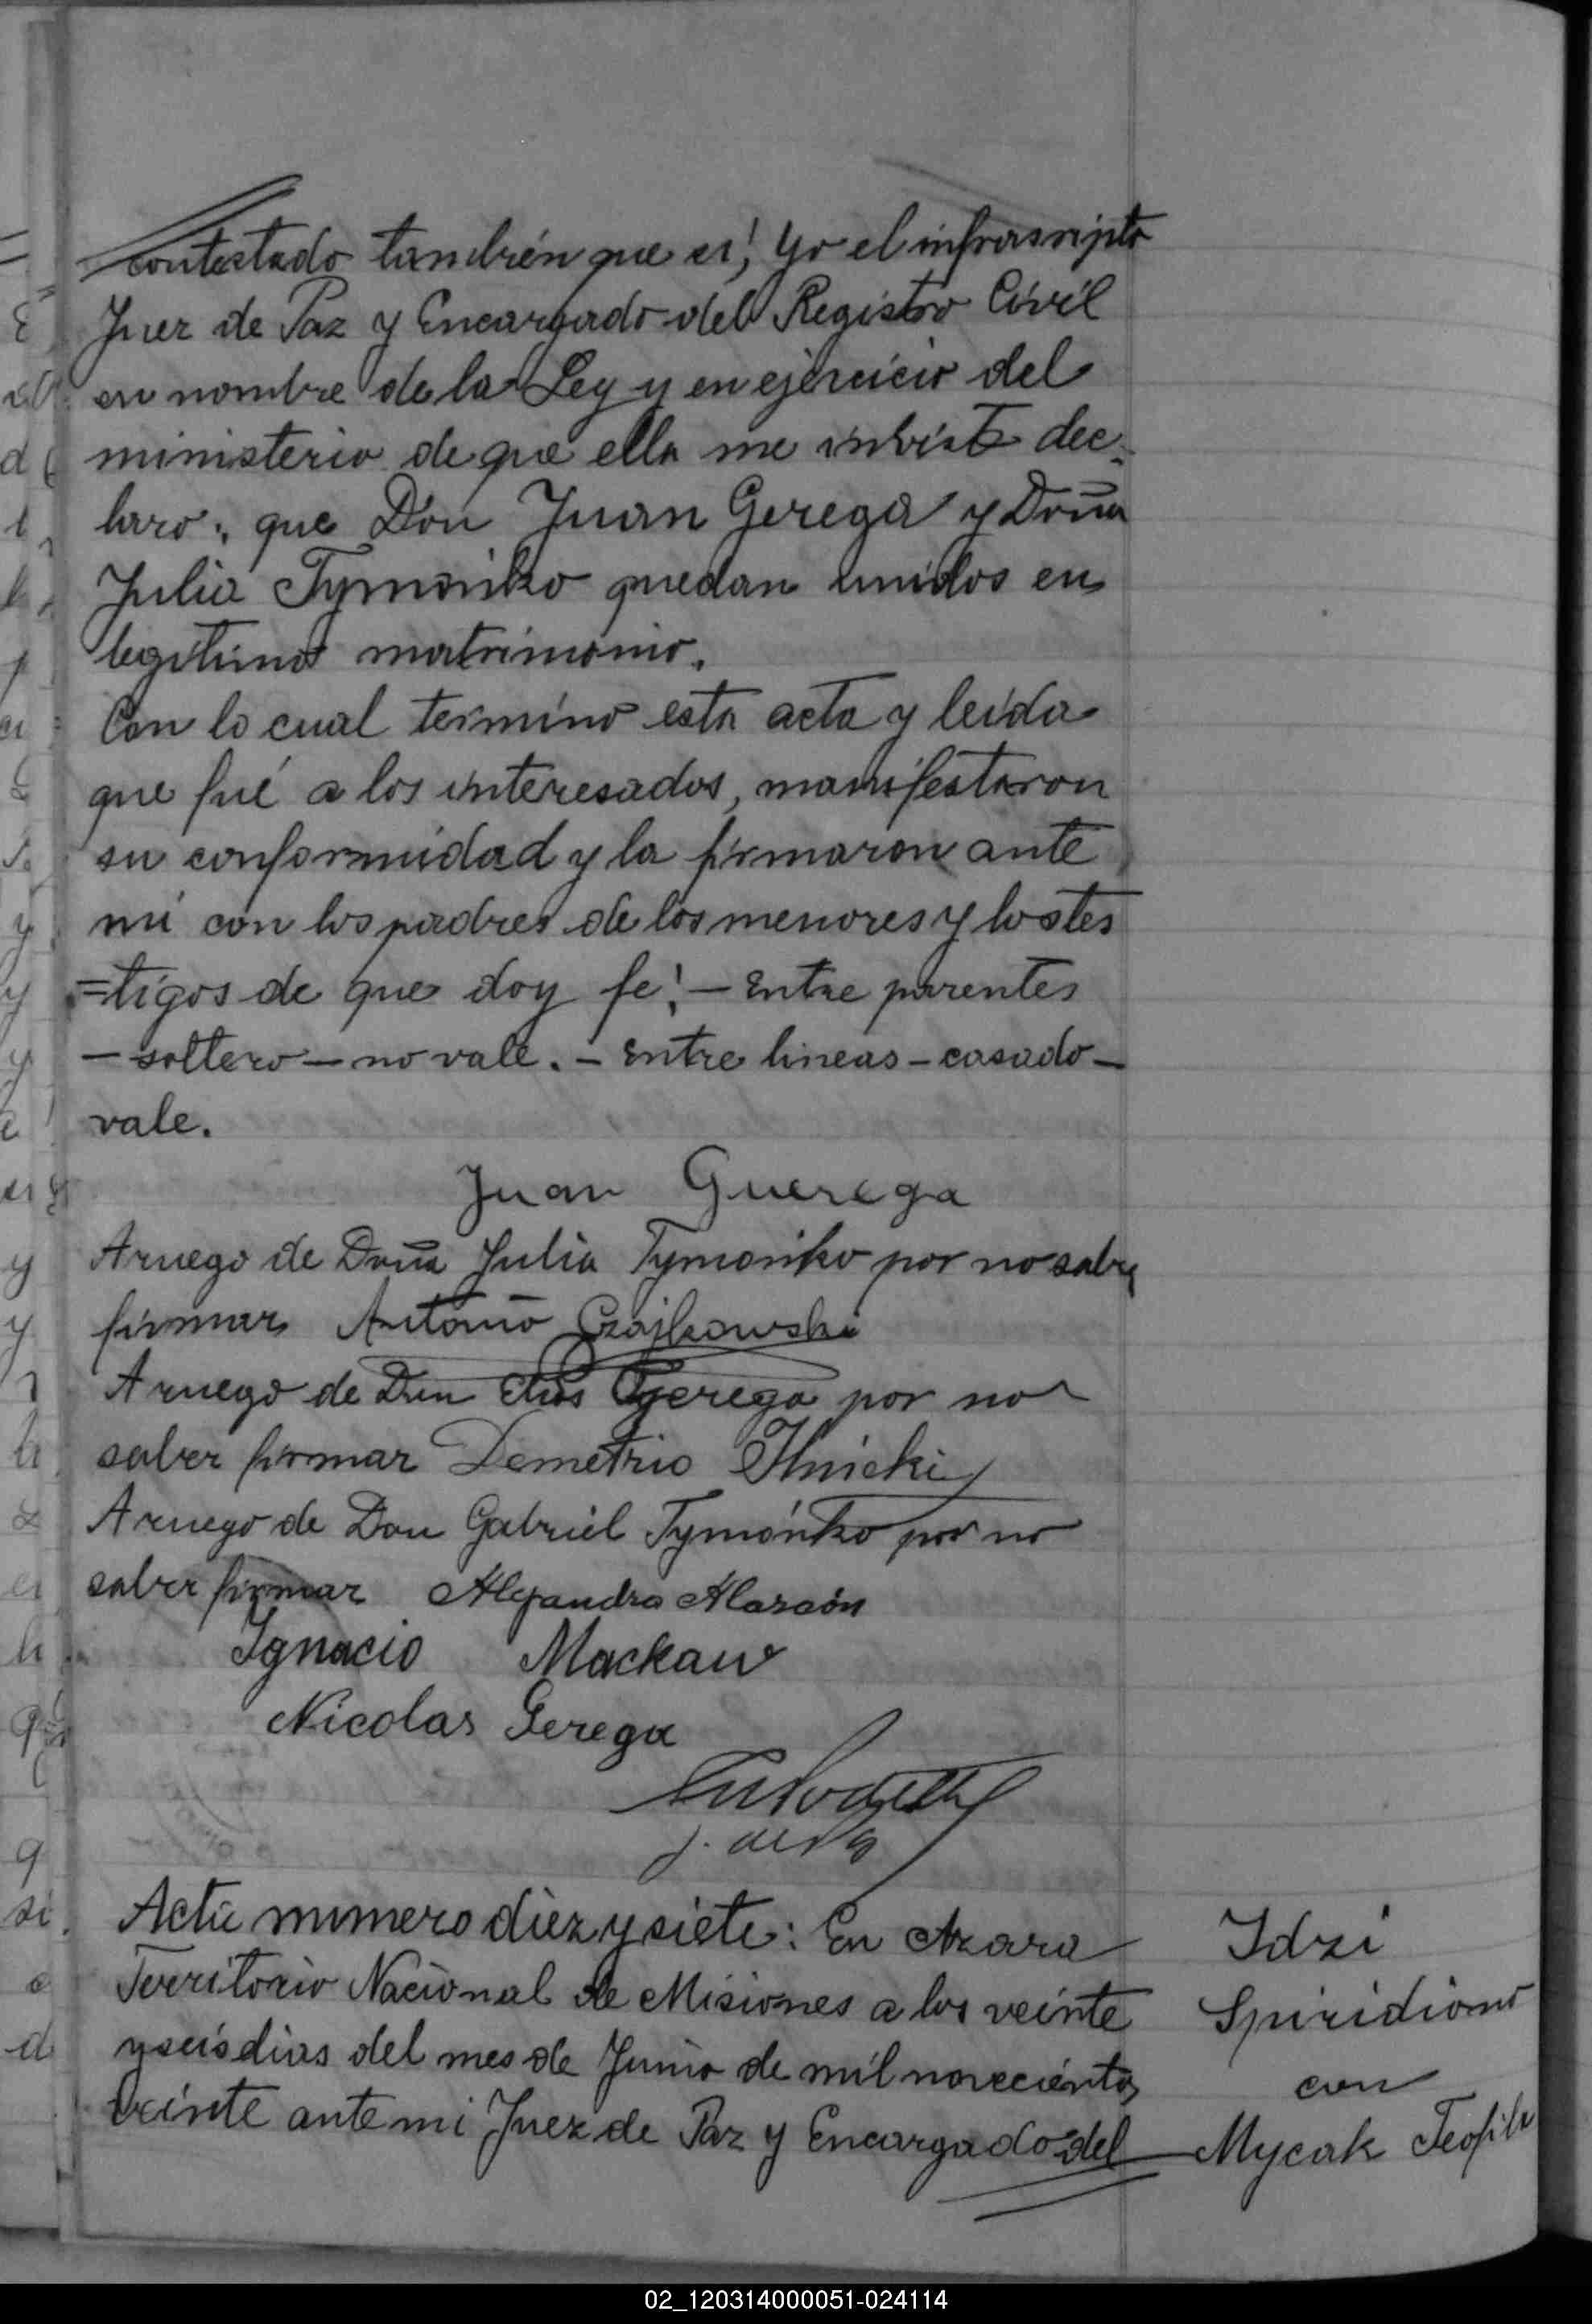 contestado tambien que si; Yo el infrascripto
Juez de Paz y Encargado del Registro Civil
en nombre de la Ley y en ejercicio del
ministerio de que ella me inviste dec-
laro: que Don Juan Gerega y Doña
Julia Tymoñko quedan unidos en
legitimo matrimonio.
Con lo cual termino esta acta y leida
que fué a los interesados, manifestaron
su conformidad y la firmaron ante
mi con los padres de los menores y los tes
=tigos de que doy fe: — Entre parentes
— soltero — no vale. — Entre lineas — casado —
vale.
Juan Guerega
Aruego de Doña Julia Tymoñko por no saber
firmar Antonio Czajkowski
Aruego de Don Elias Gerega por no
saber firmar Demetrio Ilnicki
Aruego de Don Gabriel Tymóñko por no
saber firmar Alejandro Alarcón
Ignacio Mackaw
Nicolas Gerega
J. de Paz
Acta numero diez y siete: En Azara
Territorio Nacional de Misiones a los veinte
y seis dias del mes de Junio de mil novecientos
veinte ante mi Juez de Paz y Encargado del
Idzi
Spiridiono
con
Mycak Teofila
02_120314000051-024114